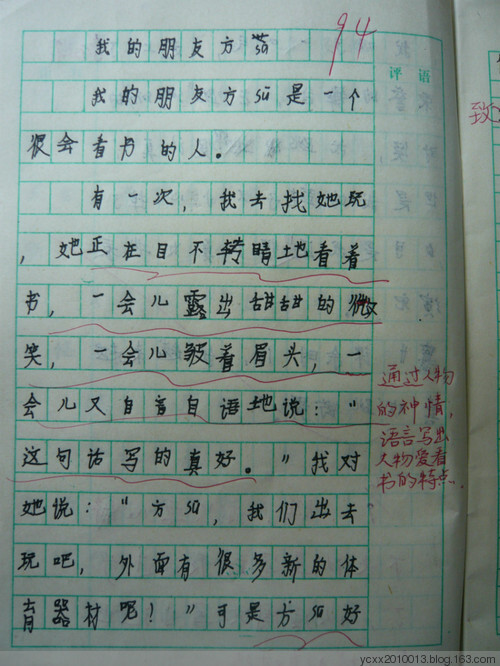 94
我的朋友方
评语
我的朋友方sū是一个
很会看书的人。
有一次，我去找她玩
，她正在目不转晴地看着
书，一会儿露出甜甜的微
笑，一会儿皱着眉头，一
会儿又自言自语地说：“
这句话写的真好。”我对
她说：“方sū，我们出去
玩吧，外面有很多新的体
育器材呢！”可是方sū好
通过人物
的神情，
语言写出
人物爱看
书的特点.
致
ycxx2010013.blog.163.com